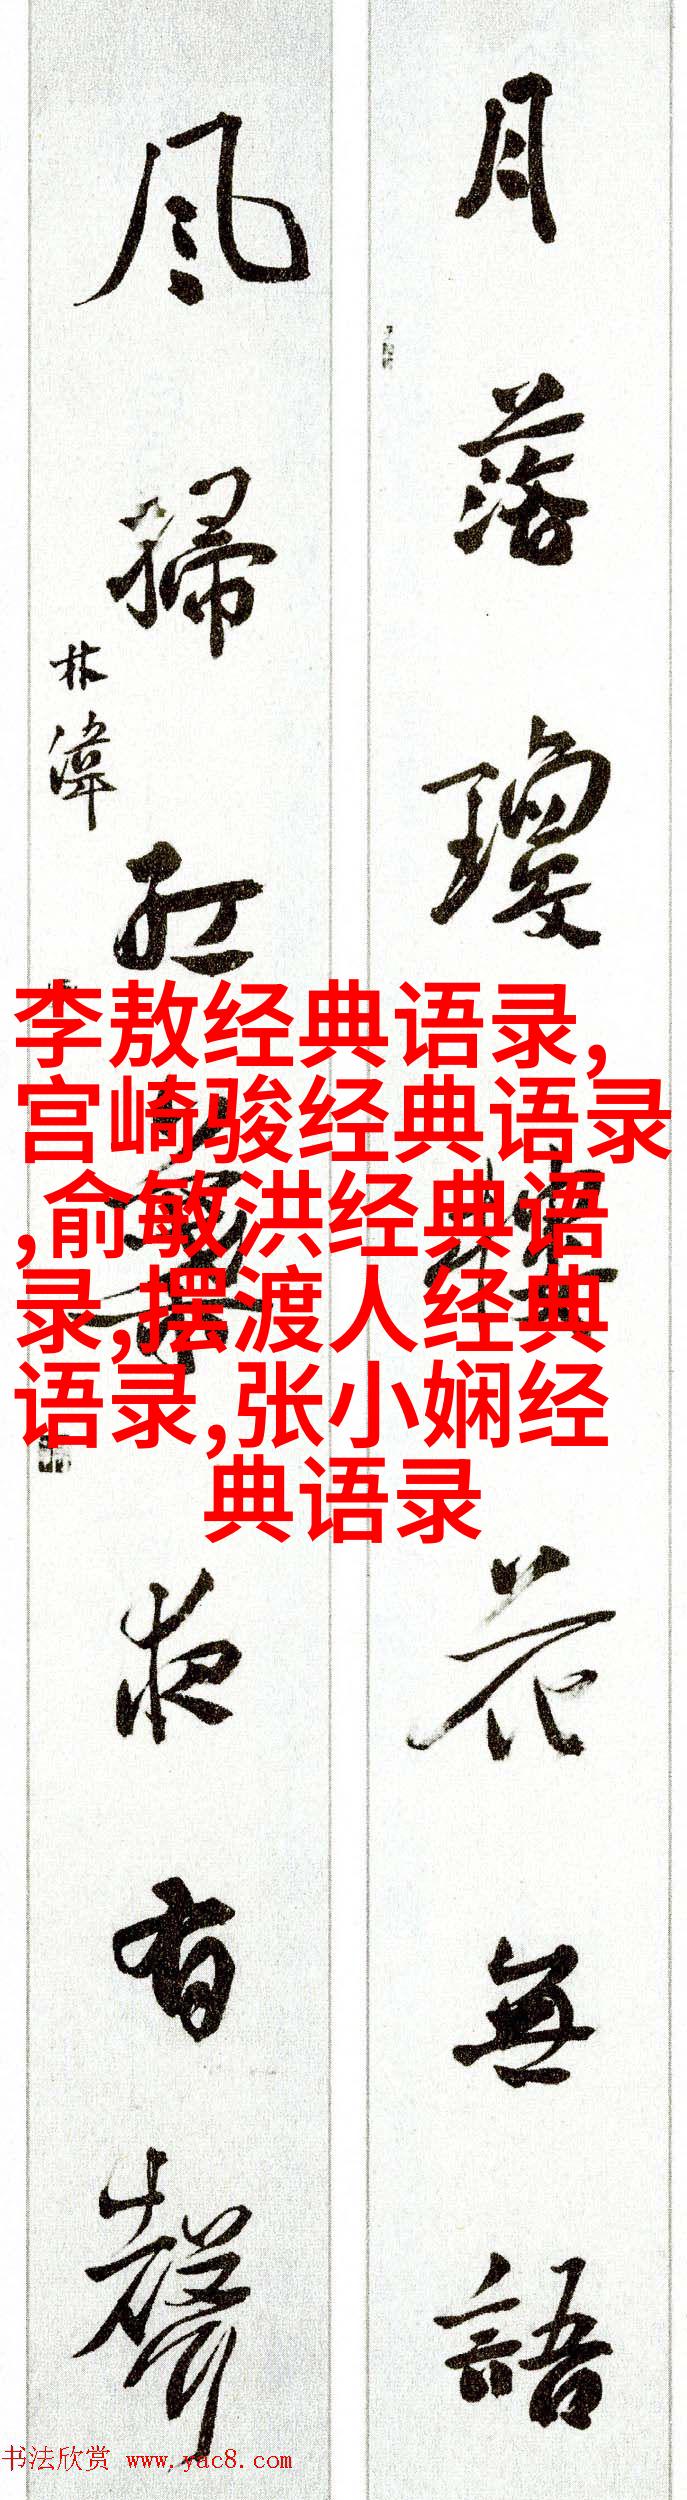 月落瓊樓花無語
風掃紅夜有聲
林偉
李敖经典语录,
宫崎骏经典语录
,俞敏洪经典语
录,摆渡人经典
语录,张小娴经
典语录
书法欣赏 www.yac8.com